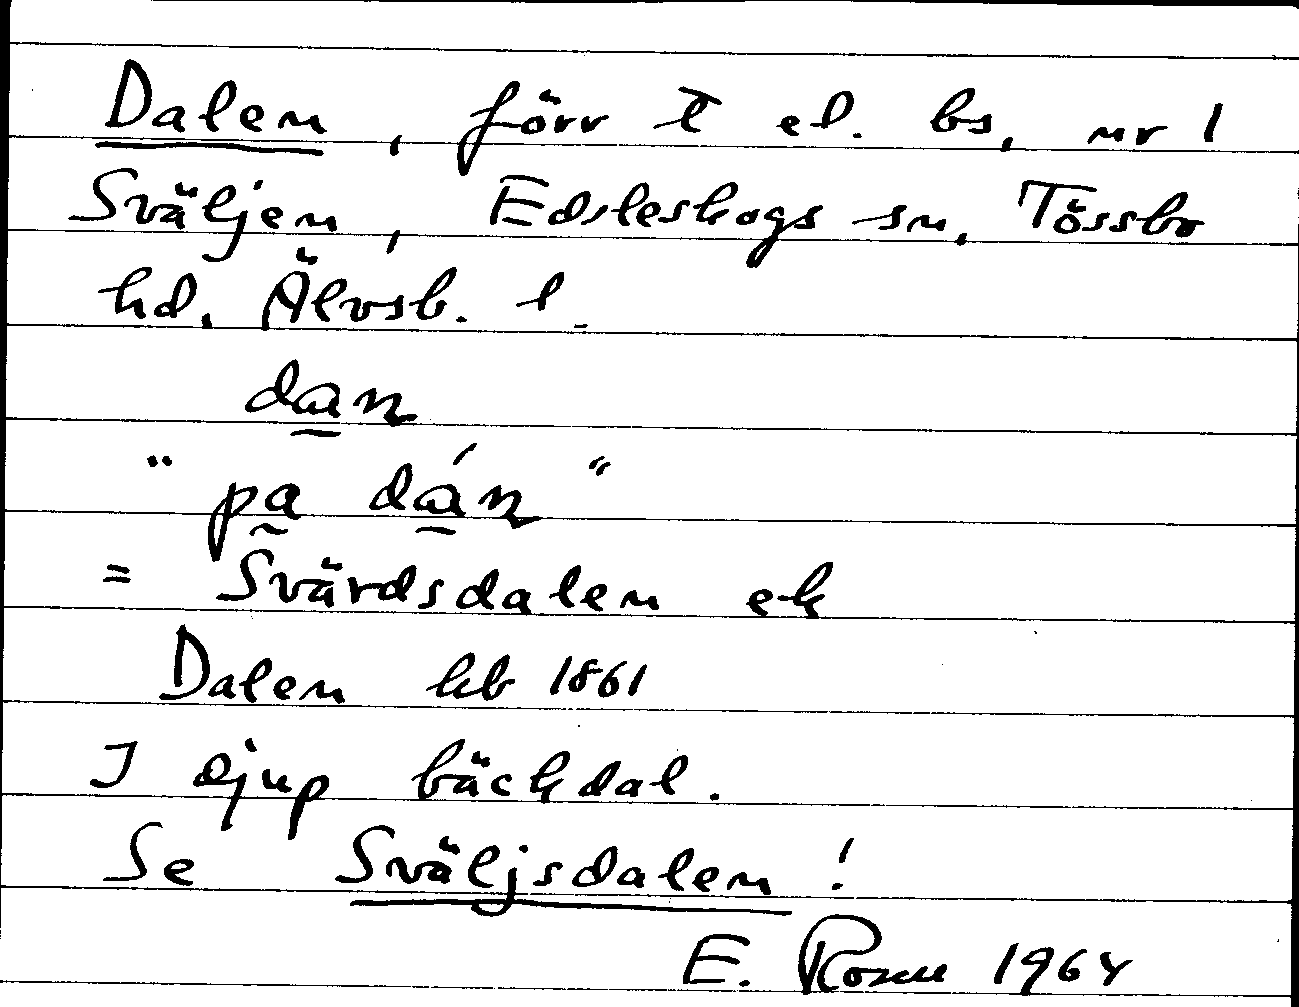 Dalen, förr t el. bs, nr 1
Sväljen, Edsleskogs sn, Tössbo
hd, Älvsb. l.
dan
"på dán"
= Svärdsdalen ek
Dalen hb 1861
I djup bäckdal.
Se Sväljsdalen!
E. Rosell 1964